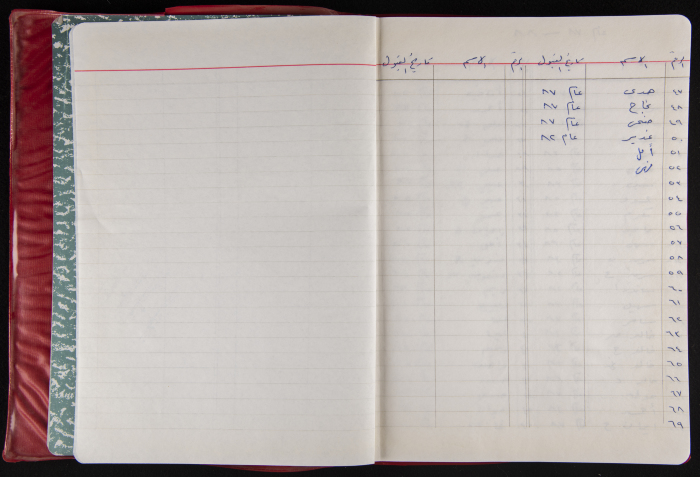 الرقم الاسم تاريخ القبول الرقم الاسم تاريخ القبول
٤٧ هدى عام ٧٧
٤٨ نجاح عام ٧٧
٤٩ عام ٧٧
٥٠ غدير عام ٧٧
٥١ أمل
٥٢
٥٣
٥٤
٥٥
٥٦
٥٧
٥٨
٥٩
٦٠
٦١
٦٢
٦٣
٦٤
٦٥
٦٦
٦٧
٦٨
٦٩